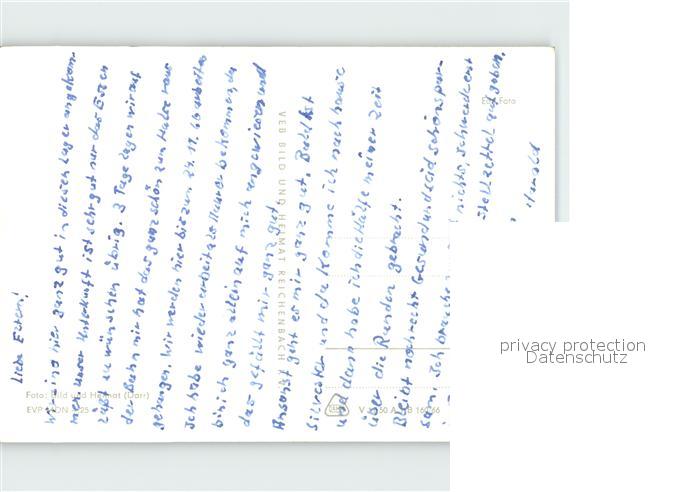 Liebe Eltern!
Wir sind hier ganz gut in diesem Lager angekom-
men. Unser Unterkunft ist sehr gut nur das Essen
läßt zu wünschen übrig. 3 Tage lagen wir auf
der Bahn mir hat das ganz schön zum Halse raus
gehangen. Wir werden hier bis zum 24.11.66 arbeiten
Ich habe wieder Arbeit als Maurer bekommen, da
bin ich ganz allein auf mich angewiesen und
das gefällt mir ganz gut.
Ansonst geht es mir ganz gut. Bald ist
Silvester und da komme ich nach hause
und dann habe ich die Hälfte meiner Zeit
über die Runden gebracht.
Bleibt noch recht Gesund und seid schön spar-
sam. Ich brauche nichts, schon erst
aufgeben,
Harald
VEB BILD UND HEIMAT REICHENBACH
Foto: Bild und Heimat (Darr)
EVP MDN 0.25
Foto
privacy protection
Datenschutz